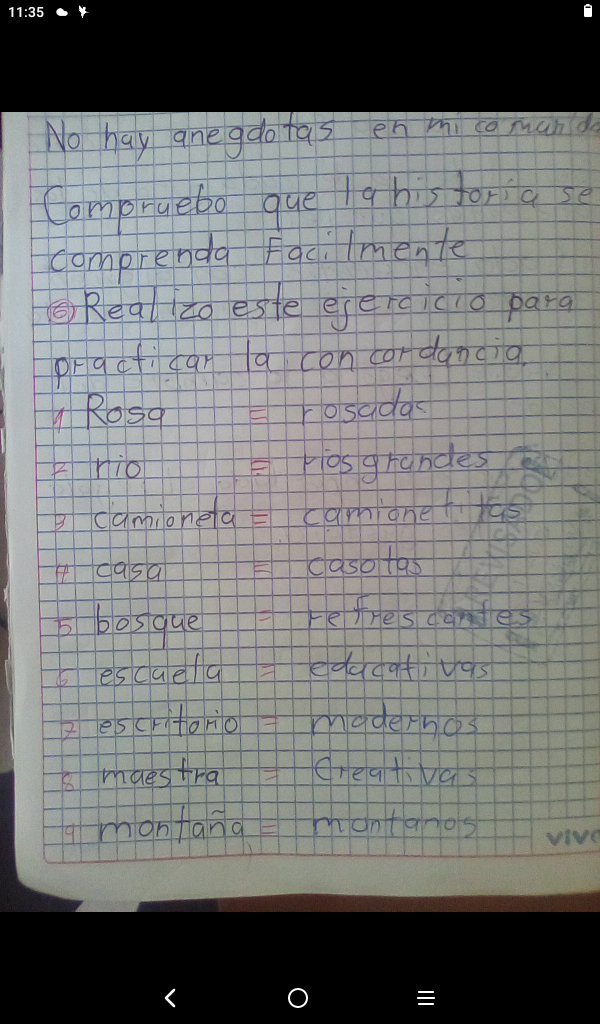 11:35
No hay anegdotas en mi comunida
Compruebo que la historia se
comprenda Facilmente
6 Realizo este ejercicio para
practicar la concordancia
1 Rosa = rosadas
2 rio = rios grandes
3 camioneta = camionetitas
4 casa = casotas
5 bosque = refrescantes
6 escuela = educativas
7 escritorio = modernos
8 maestra = Creativas
9 montaña = montanos
vivo